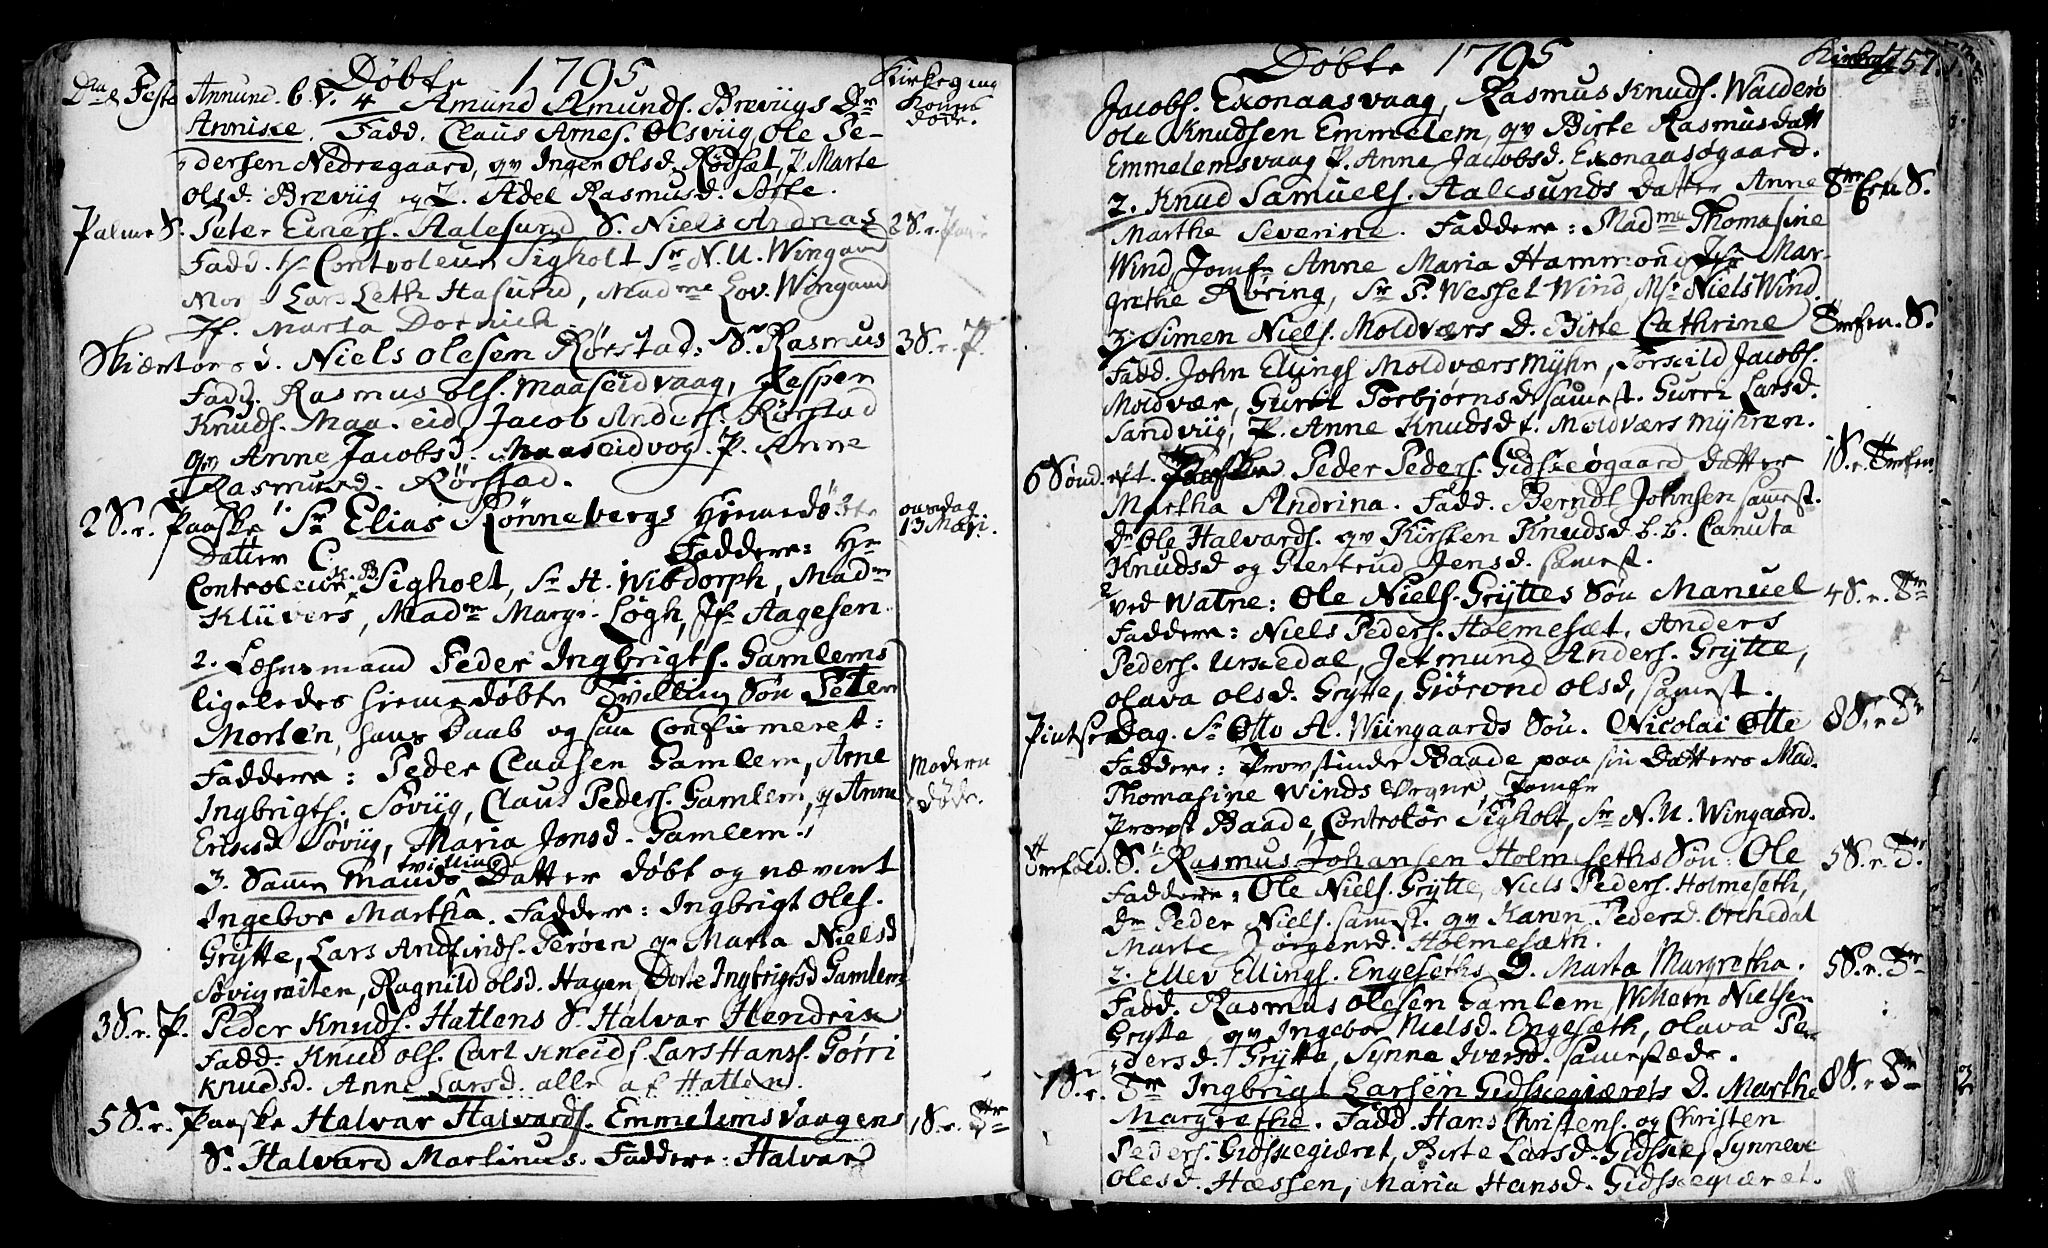 Døbte 1795
Kirkegang
Dna. Festo Annunc. b. V. 4 Amund Amunds. Brevigs Dr
Konen døde.
Anniske. Fadd. Claus Arnes. Olsviig, Ole Pe-
dersen Nedregaard, qv Inger Olsd. Rødset, P. Marte
Olsd. Breviig og Z. Adel Rasmusd. Satte.
Palme S. Peter Einers. Aalesund S. Niels Andreas
Fadd. Hr Controleur Sigholt Sr N. U. Wingaard
Lars Leth Hasund, Madme Lov. Wingaard
Jf. Marta
Skiertorsd. Niels Olesen Rørstad: S. Rasmus
3 S. e. P.
Fadd. Rasmus Ols. Maaseidvaag, Jesper
Knuds. Maaseid Jacob Anders. Rørstad
qv Anne Jacobsd. Maaseidvog. P. Anne
Rasmusd. Rørstad.
2 S. e. Paaske 1. Sr Elias Rønnebergs Hiemedøbte
onsdag 13 Maji.
Datter C. Faddere: Hr
Controleur Sigholt, Sr H. Wibdorph, Madme
Klüvers, Madme Margr. Løgh, Jfr Aagesen.
2. Læhnsmand Peder Ingbrigts. Gamlems
ligeledes hiemedøbte Tvilling Søn Peter
Morten, hans Daab ogsaa Confirmeret:
Faddere: Peder Clausen Gamlem, Arne
Ingbrigts. Søviig, Claus Peders. Gamlem, q Anne
Moderen døde.
Ericsd Søviig, Maria Jonsd. Gamlem.
3. Samme Mands tvilling Datter døbt og nævnt
Ingebor Martha. Faddere: Ingbrigt Oles.
Grytte, Lars Andfinds. Terøen qv Marta Nielsd
Søvigneiten, Ragnild Olsd. Hagen, Dorte Ingbrigtsd Gamlem.
3 S. e. P. Peder Knuds. Hatlens S. Halvar Hendrik
Fadd. Knud Ols. Carl Kneids. Lars Hans. Gørri
Knudsd. Anne Larsd. alle af Hatlen.
5 S. e. Paaske Halvar Halvards. Emmelemsvaagens
1 S. e. Tr
S. Halvard Martinus. Faddere: Halvar
Døbte 1795
Kirkeg 157.
Jacobs. Exonaasvaag, Rasmus Knuds. Walderø
Ole Knudsen Emmelem, qv Birte Rasmusdatt
Emmelemsvaag P. Anne Jacobsd. Exonaasøgaard.
2. Knud Samuels. Aalesunds Datter Anne
Marthe Severine. Faddere: Madme Thomasine
Wind, Jomfr Anne Maria Hammond, Jfr Mar-
grethe Røring, Sr P. Wessel Wind, Mr Niels Wind.
3. Simen Niels. Moldværs D. Birte Cathrine
Fadd. John Ellings Moldværsmyhr, Torkild Jacobs.
Moldvær, Guri Torbjørnsd samest. Gurri Larsd.
Sandviig, P. Anne Knudsd. Moldværsmyhren.
6 Sønd. eft. Paaske. Peder Peders. Gidskeøgaard Datter
Martha Andrina. Fadd. Berndt Johnsen samest.
Dr Ole Halvards. qv Kirsten Knudsd b. b. Canuta
Knudsd og Giertrud Jensd. samest.
2 ved Watne: Ole Niels. Gryttes Søn Manuel
4 S. e. Tr
Faddere: Niels Peders. Holmesæt, Anders
Peders. Urkedal, Jetmund Anders. Grytte,
Olava Olsd. Grytte, Giørond Olsd, samest.
Pintse Dag. Sr Otto A. Wiingaards Søn. Nicolai Otte
8 S. e. Tr
Faddere: Provstinde Baade paa sin Datters Mad.
Thomasine Winds Vegne, Jomfr
Provst Baade, Controlør Sigholt, Sr N. U. Wingaard.
S. 1. Rasmus Johansen Holmeseths Søn: Ole
5 S. e. Tr
Faddere: Ole Niels. Grytte, Niels Peders. Holmeseth,
Dr Peder Niels. samest. qv Karen Pedersd. Orchedal
Marte Jørgensd. Holmesæth.
2. Ellev Ellings. Engeseths D. Marta Margretha.
5 S. e. Tr
Fadd. Rasmus Olesen Gamlem, Wilhelm Nielsen
Grytte qv Ingebor Nielsd. Engesæth, Olava Pe-
dersd. Grytte, Synne Iversd. samestæde.
1 S. e. Tr Ingbrigt Larsen Gidskegiærets D. Marthe
8 S. e. Tr
Margrethe. Fadd. Hans Christens. og Christen
Peders. Gidskegiæret, Birte Larsd. Gidske, Synneve
Olesd. Hæssen, Maria Hansd. Gidskegiæret.